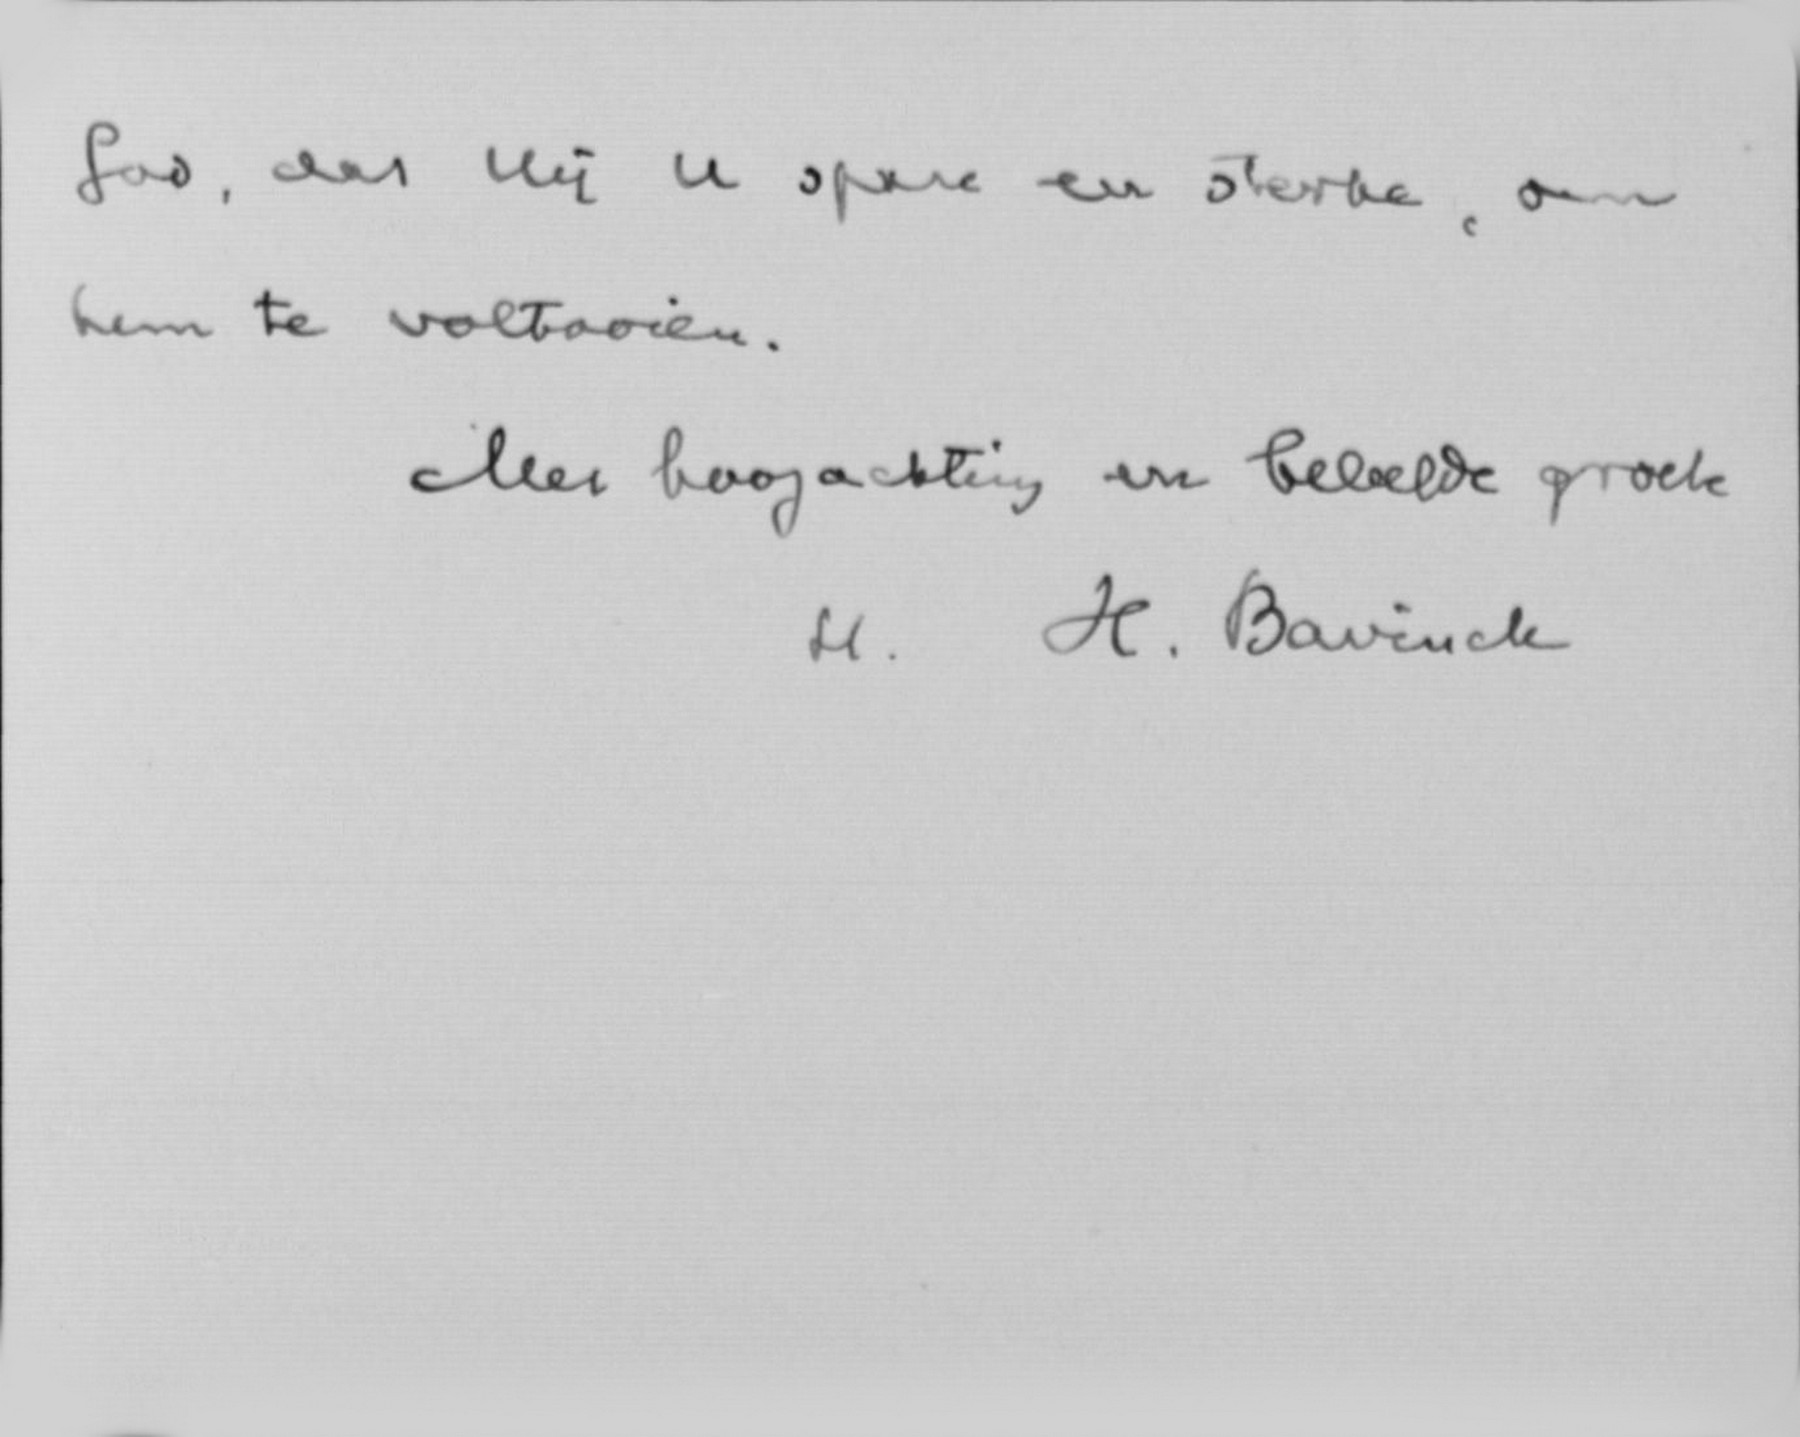 God, dat Hij U spare en sterke, om
hem te voltooien.
Met hoogachting en beleefde groete
H. Bavinck